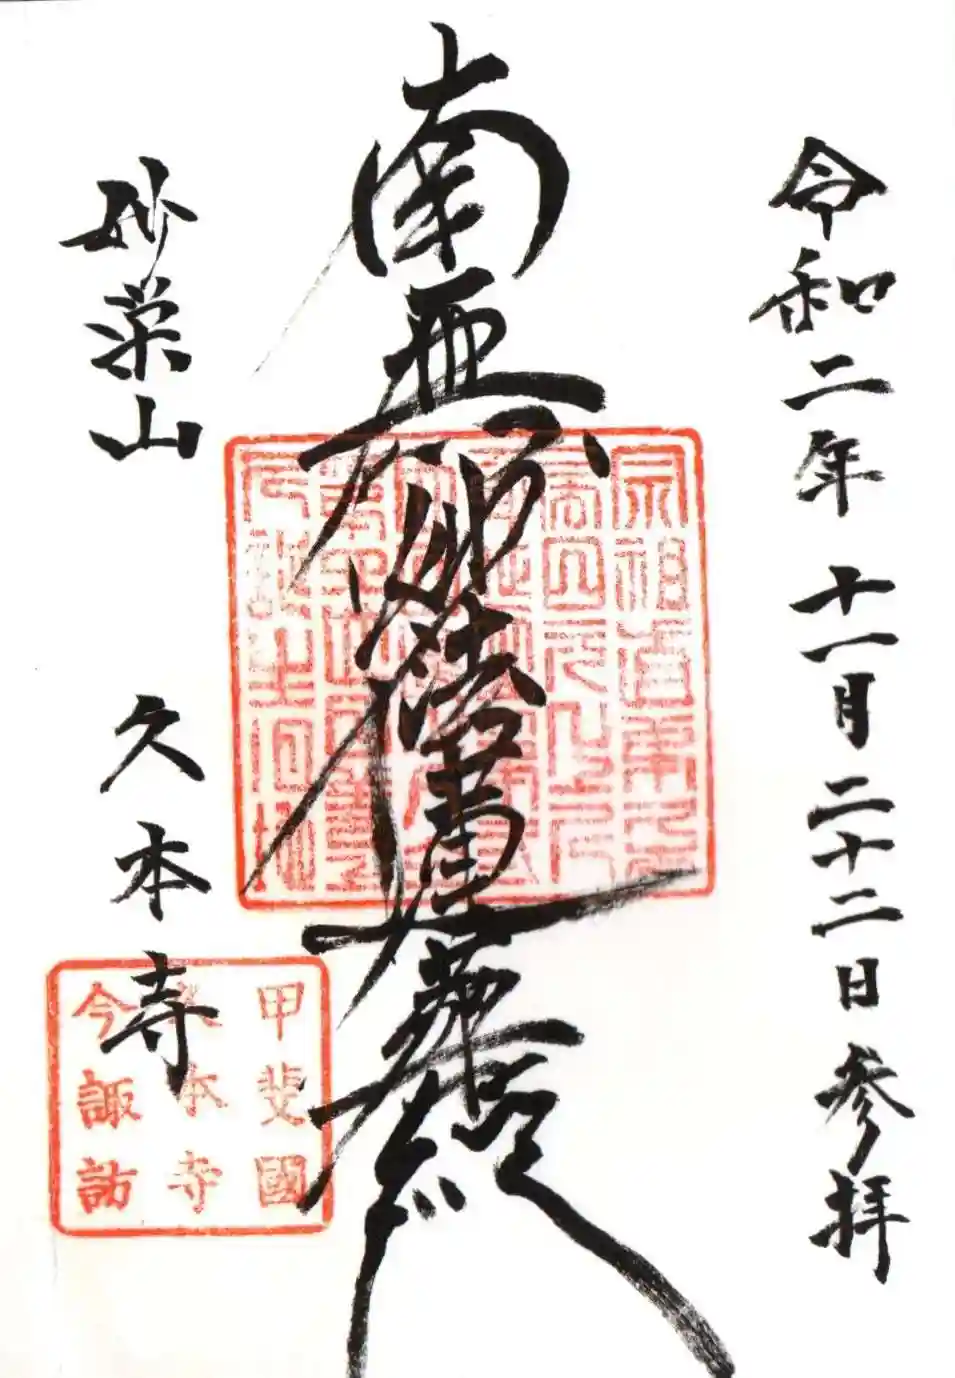 令和二年 十一月二十二日 参拝
南無妙法蓮華経
妙栄山 久本寺
甲斐國
久本寺
今諏訪